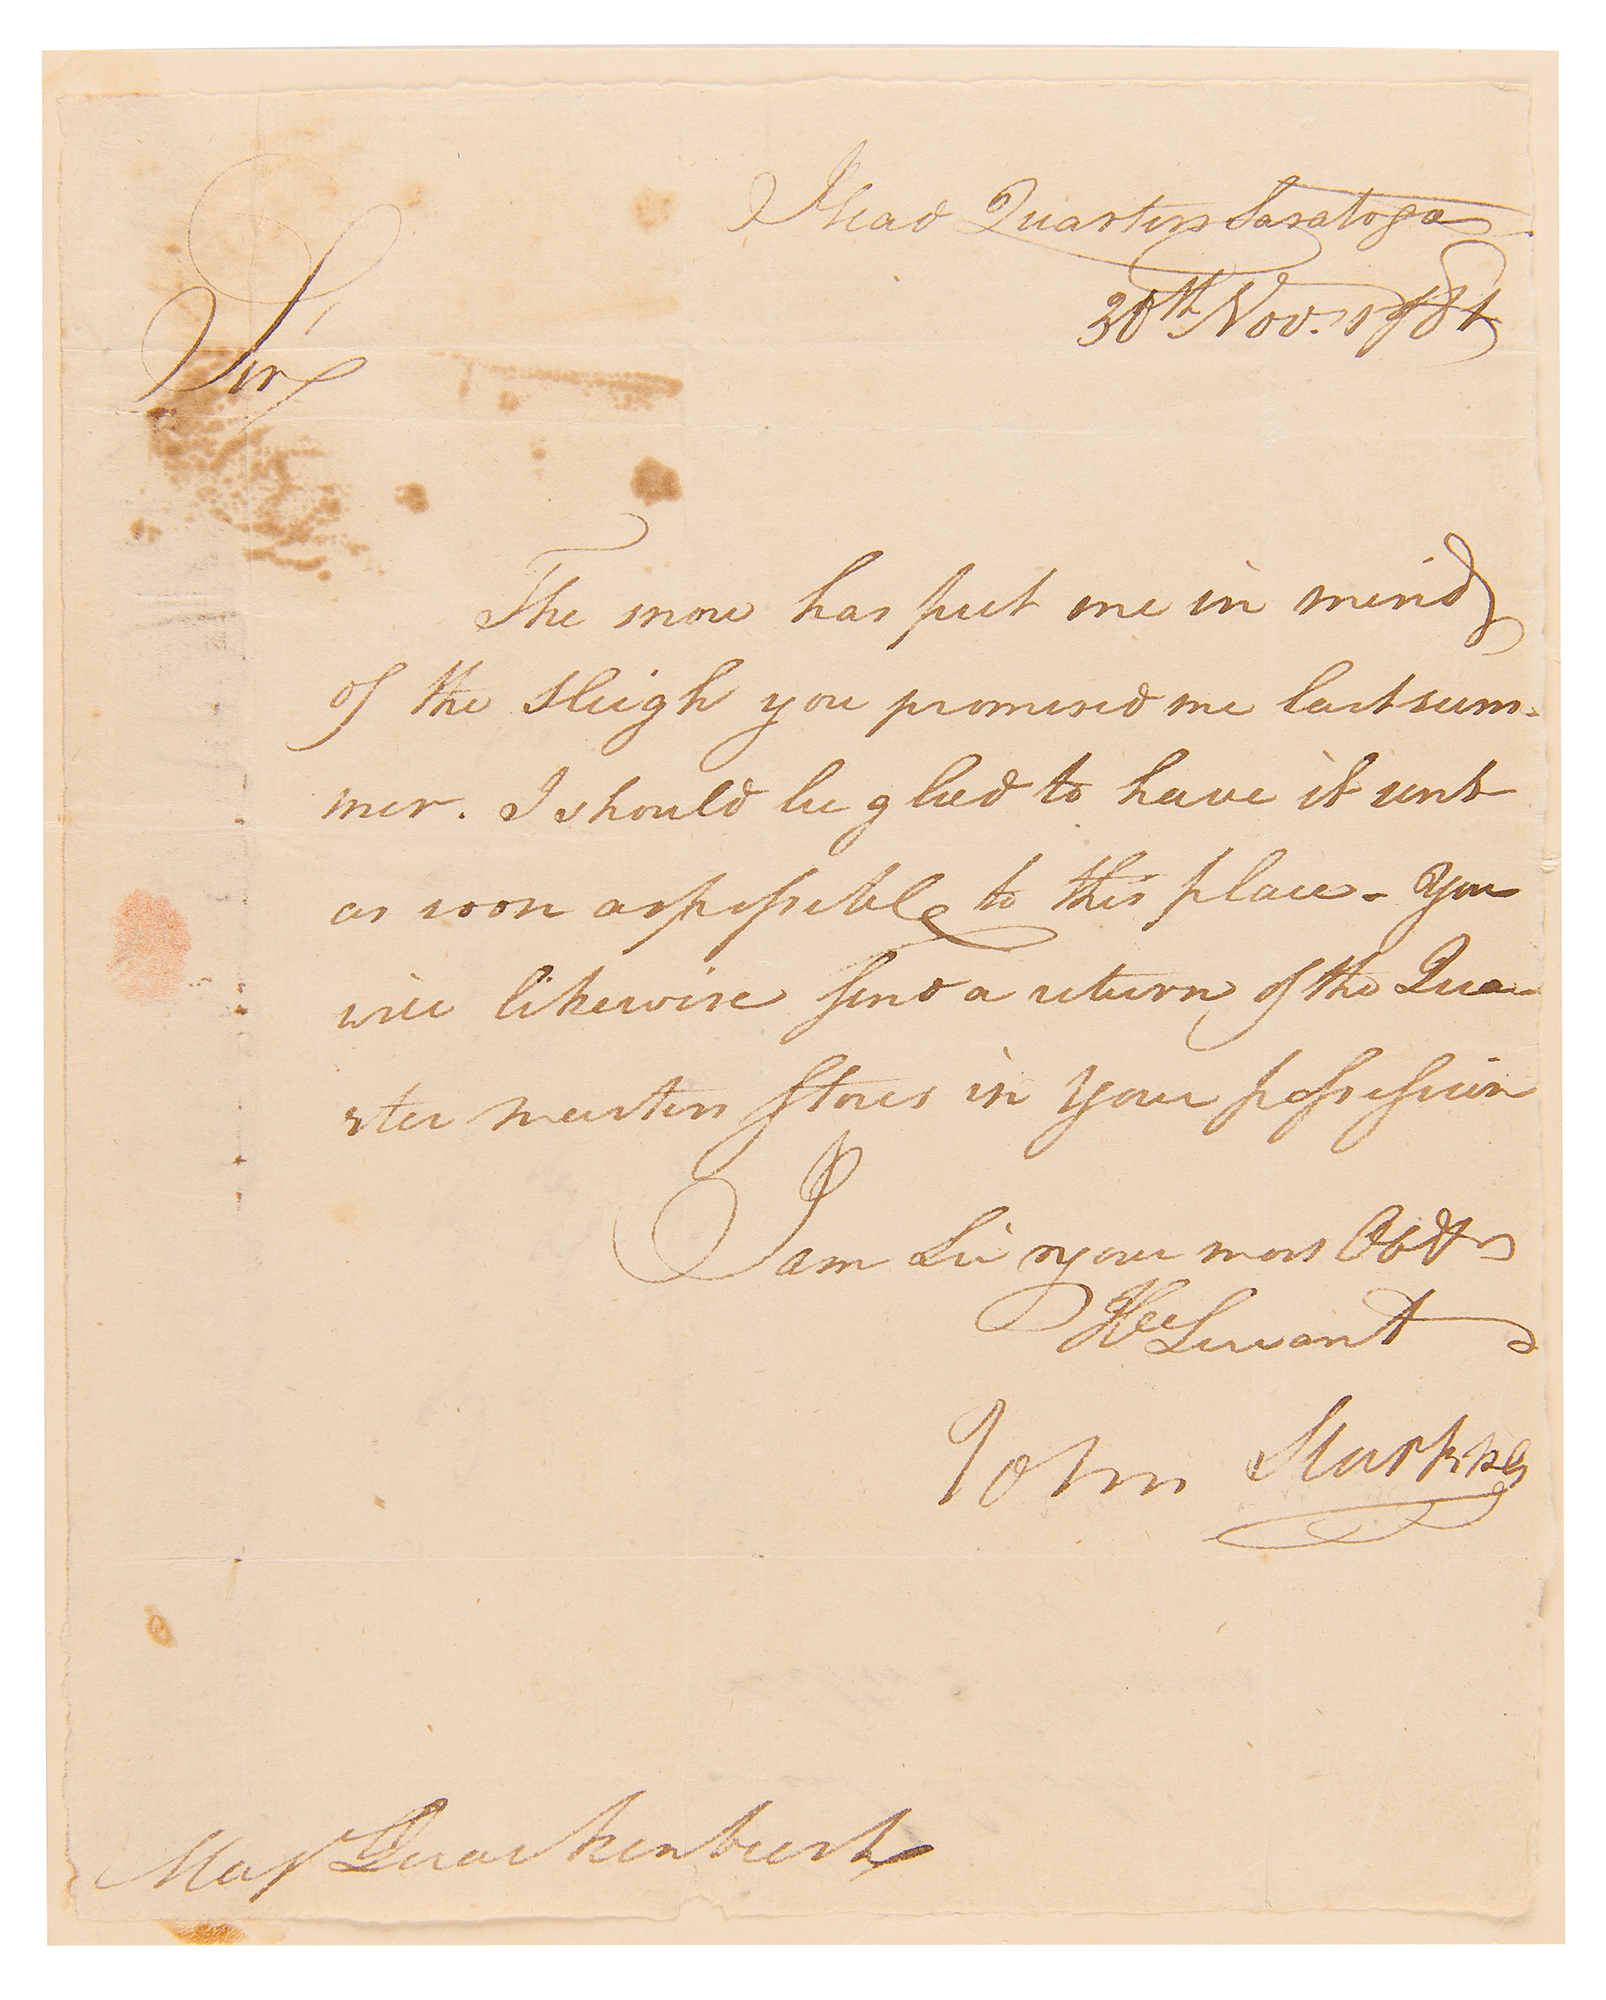 Head Quarters Saratoga
30th Nov. 1781
Sir
The snow has put me in mind
of the Sleigh you promised me last sum-
mer. I should be glad to have it sent
as soon as possible to this place - You
will likewise send a return of the Qua-
rter masters Stores in your possession
I am Sir your most Obdt
Hle Servant
John Stark
Maj Quackenbush